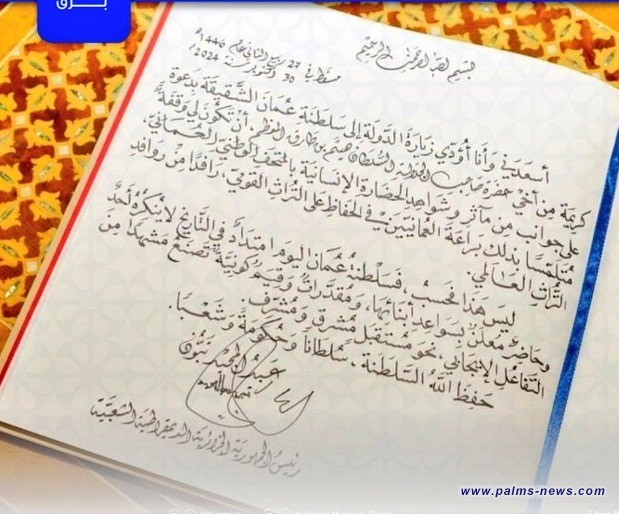 بـــرق
بسم الله الرحمن الرحيم
مسقط في 27 ربيع الثاني عام 1446هـ
30 أكتوبر سنة 2024م
أسعدني وأنا أؤدي زيارة الدولة إلى سلطنة عُمان الشقيقة بدعوة
كريمة من أخي حضرة صاحب الجلالة السلطان هيثم بن طارق المعظم، أن تكون لي وقفة
على جوانب من مآثر وشواهد الحضارة الإنسانية بالمتحف الوطني العُماني،
مُتلمّسًا بذلك براعة العُمانيين في الحفاظ على التراث القومي، رافدًا من روافد
التراث العالمي.
ليس هذا فحسب، فسلطنة عُمان اليوم امتداد في التاريخ لا ينكره أحد
وحاضر معلن بسواعد أبنائها، ومقدرات وقيم كونية تصنع مشهدًا من
التفاعل الإيجابي، نحو مستقبل مشرق ومُشرّف.
حفظ الله السلطنة، سلطانًا وحكومةً وشعبًا.
عبد المجيد تبّون
رئيس الجمهورية الجزائرية الديمقراطية الشعبية
www.palms-news.com